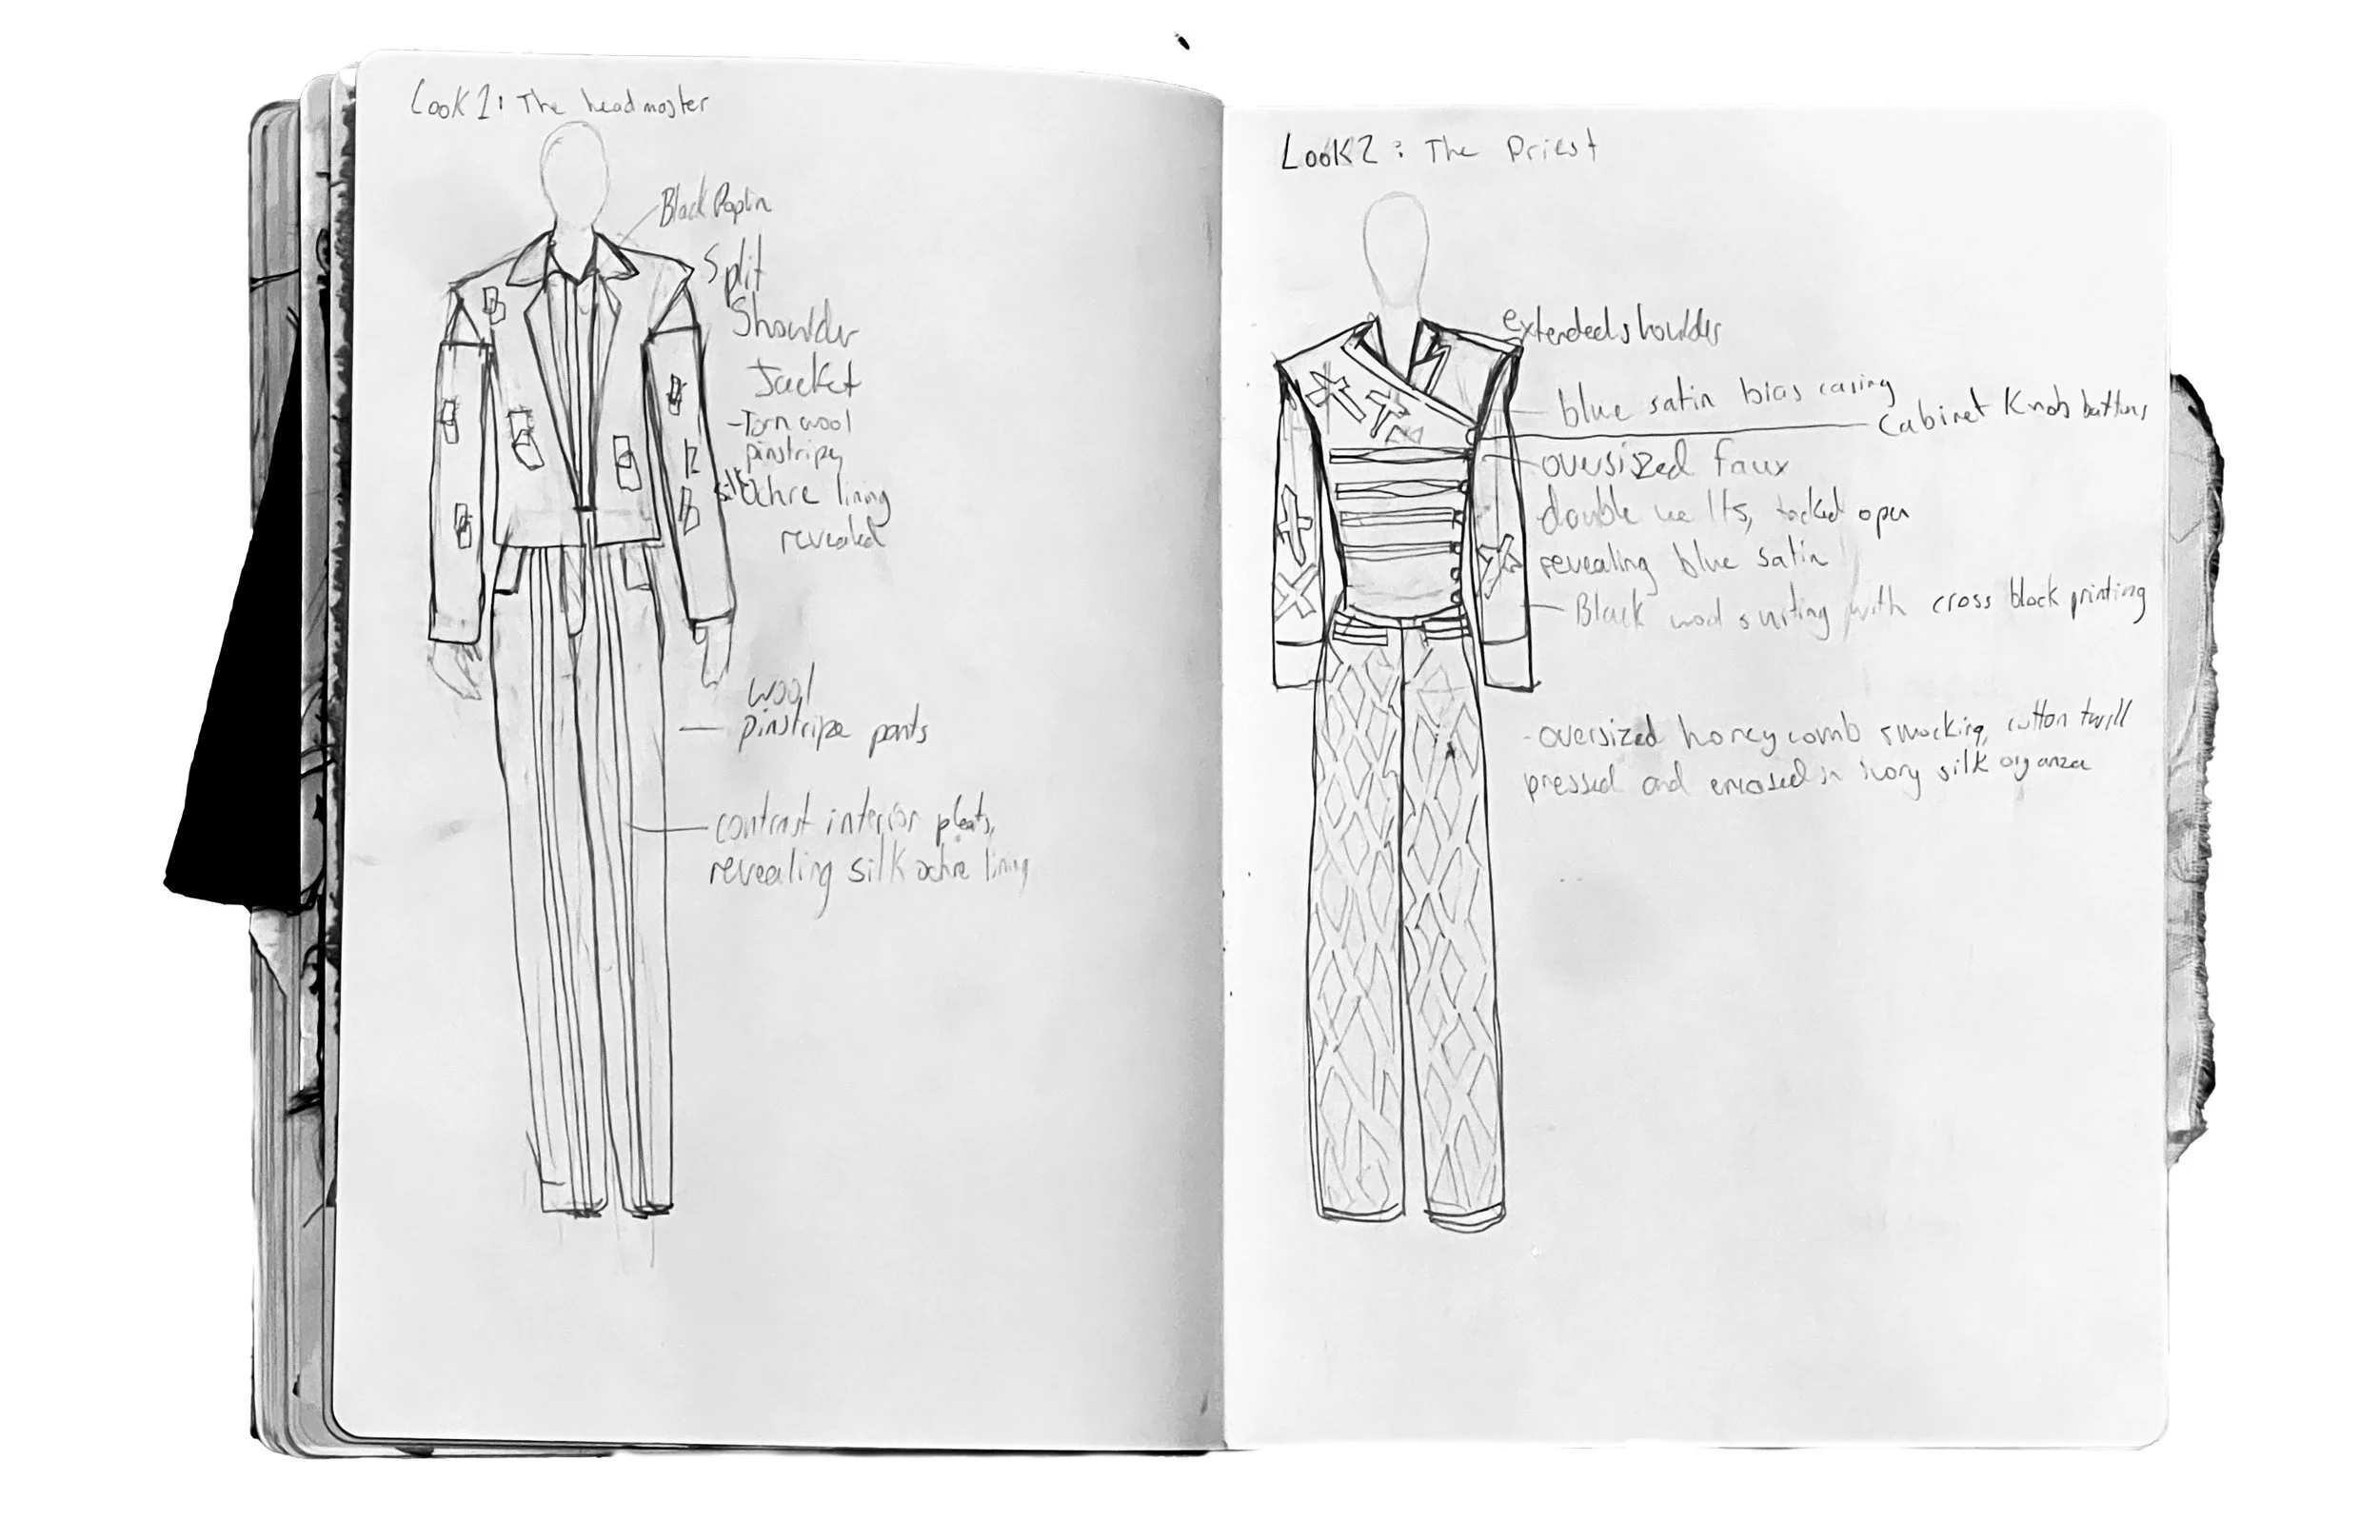 Look 1: The headmaster
Black Poplin
Split
Shoulder
Jacket
-Torn wool
pinstripe,
silk Ochre lining
revealed
wool
pinstripe pants
contrast interior pleats,
revealing silk ochre lining
Look 2: The Priest
extended shoulder
blue satin bias casing
Cabinet Knob buttons
oversized faux
double welts, tacked open
revealing blue satin
Black wool suiting with cross block printing
-oversized honeycomb smocking, cotton twill
pressed and encased in ivory silk organza